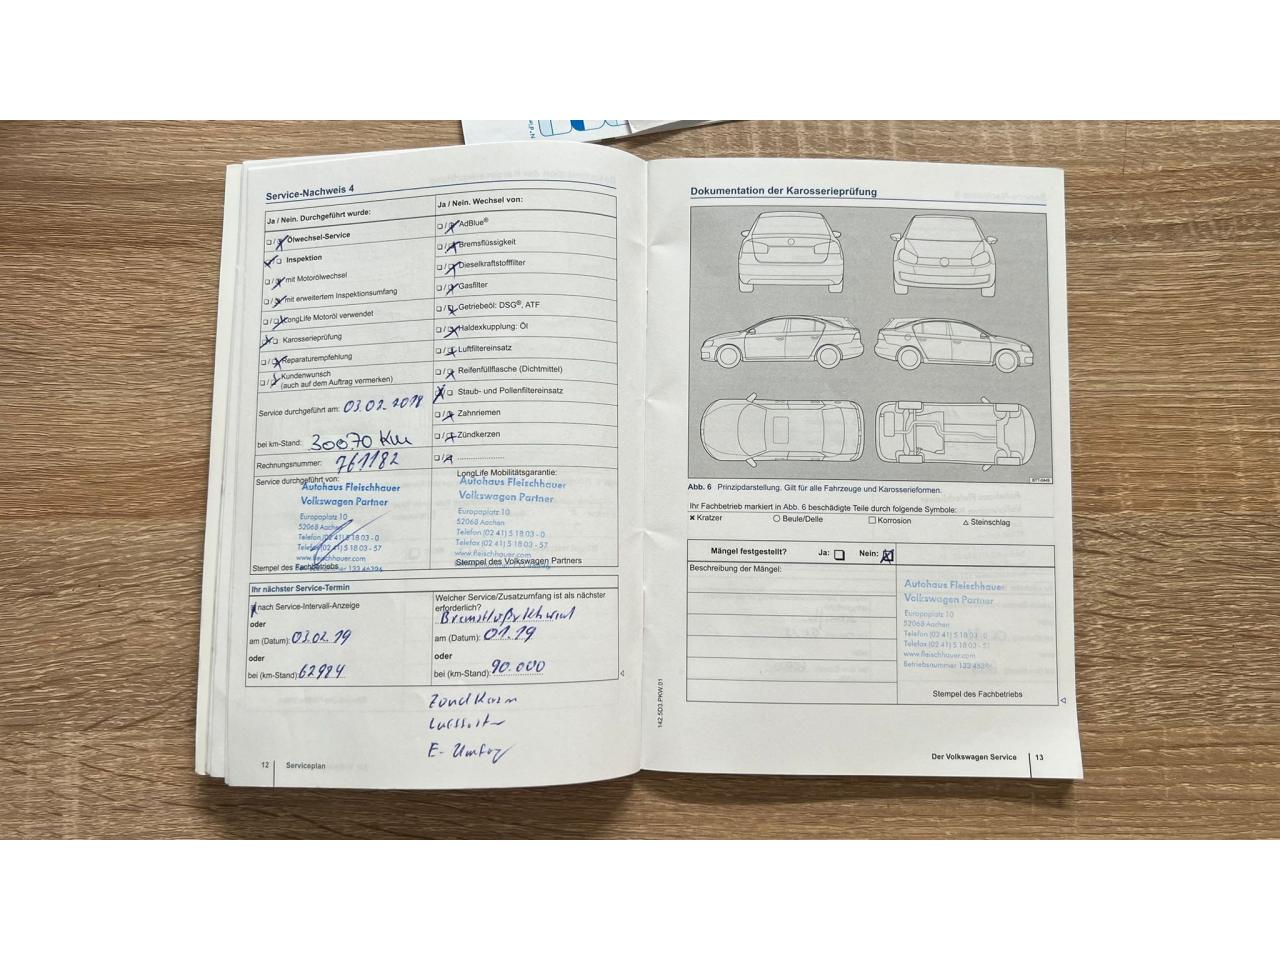 Service-Nachweis 4
Ja / Nein. Durchgeführt wurde:
Ja / Nein. Wechsel von:
Ölwechsel-Service
Inspektion
mit Motorölwechsel
mit erweitertem Inspektionsumfang
LongLife Motoröl verwendet
Karosserieprüfung
Reparaturempfehlung
Kundenwunsch
(auch auf dem Auftrag vermerken)
AdBlue®
Bremsflüssigkeit
Dieselkraftstofffilter
Gasfilter
Getriebeöl: DSG®, ATF
Haldexkupplung: Öl
Luftfiltereinsatz
Reifenfüllflasche (Dichtmittel)
Staub- und Pollenfiltereinsatz
Zahnriemen
Zündkerzen
Service durchgeführt am: 03.02.2018
bei km-Stand: 30070 Km
Rechnungsnummer: 761182
Service durchgeführt von:
Autohaus Fleischhauer
Volkswagen Partner
Europaplatz 10
52068 Aachen
Telefon (02 41) 5 18 03 - 0
Telefax (02 41) 5 18 03 - 57
www.fleischhauer.com
Stempel des Fachbetriebs
LongLife Mobilitätsgarantie:
Autohaus Fleischhauer
Volkswagen Partner
Europaplatz 10
52068 Aachen
Telefon (02 41) 5 18 03 - 0
Telefax (02 41) 5 18 03 - 57
www.fleischhauer.com
Stempel des Volkswagen Partners
Ihr nächster Service-Termin
nach Service-Intervall-Anzeige
oder
am (Datum): 03.02.19
oder
bei (km-Stand): 62984
Welcher Service/Zusatzumfang ist als nächster
erforderlich?
am (Datum): 01.19
oder
bei (km-Stand): 90.000
12
Serviceplan
Dokumentation der Karosserieprüfung
Abb. 6 Prinzipdarstellung. Gilt für alle Fahrzeuge und Karosserieformen.
Ihr Fachbetrieb markiert in Abb. 6 beschädigte Teile durch folgende Symbole:
Kratzer
Beule/Delle
Korrosion
Steinschlag
Mängel festgestellt? Ja: Nein:
Beschreibung der Mängel:
Autohaus Fleischhauer
Volkswagen Partner
Europaplatz 10
52068 Aachen
Telefon (02 41) 5 18 03 - 0
www.fleischhauer.com
Stempel des Fachbetriebs
142.5D3.PKW.01
Der Volkswagen Service
13